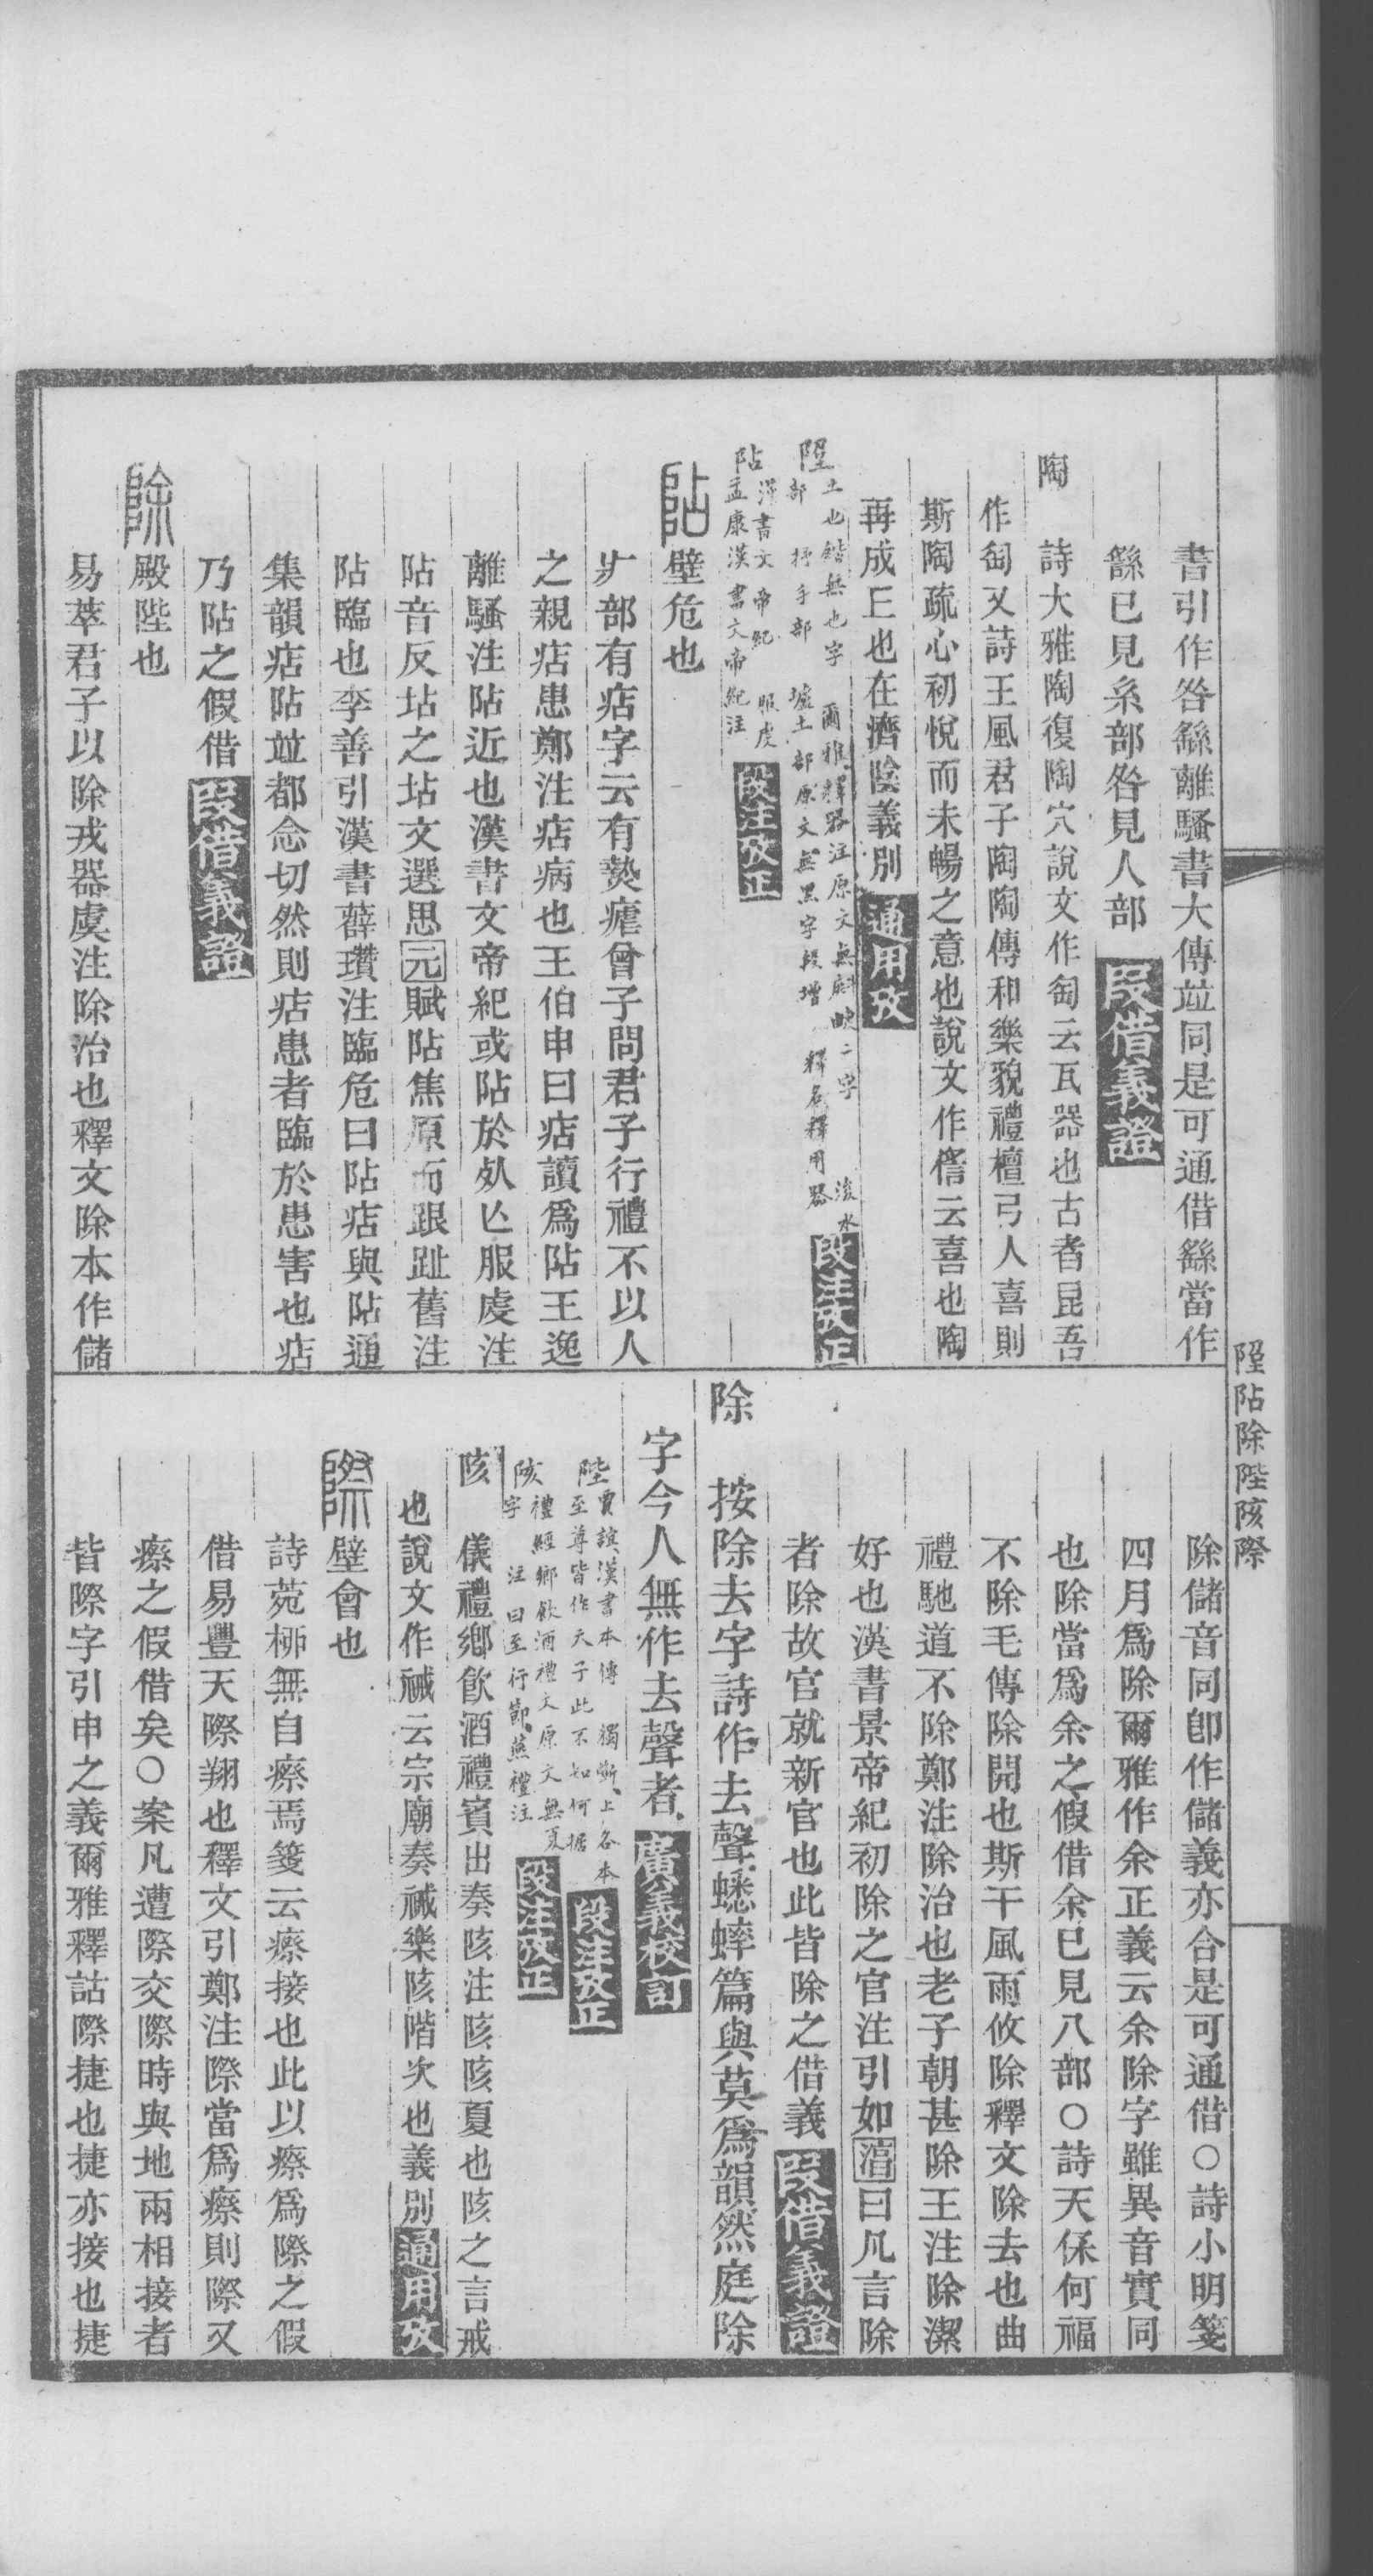 書引作咎繇離騷書大傳竝同是可通借繇當作
繇已見糸部咎見人部 叚借義證
陶 詩大雅陶復陶穴說文作匋云瓦器也古者昆吾
作匋又詩王風君子陶陶傳和樂貌禮檀弓人喜則
斯陶疏心初悅而未暢之意也說文作㑾云喜也陶
再成丘也在濟陰義別 通用攷
土也鍇無也字 爾雅釋器注原文無 二字 水
部 抒手部 壚土部原文無黑字段增 釋名釋用器 段注攷正
阽 漢書文帝紀 服虔
孟康漢書文帝紀注 段注攷正
阽 壁危也
疒部有痁字云有熱瘧曾子問君子行禮不以人
之親痁患鄭注痁病也王伯申曰痁讀爲阽王逸
離騷注阽近也漢書文帝紀或阽於死亾服虔注
阽音反坫之坫文選思元賦阽焦原而跟趾舊注
阽臨也李善引漢書薛瓚注臨危曰阽痁與阽通
集韻痁阽竝都念切然則痁患者臨於患害也痁
乃阽之假借 叚借義證
除 殿陛也
易萃君子以除戎器虞注除治也釋文除本作儲
除儲音同卽作儲義亦合是可通借○詩小明箋
四月爲除爾雅作余正義云余除字雖異音實同
也除當爲余之假借余已見八部○詩天保何福
不除毛傳除開也斯干風雨攸除釋文除去也曲
禮馳道不除鄭注除治也老子朝甚除王注除潔
好也漢書景帝紀初除之官注引如淳曰凡言除
者除故官就新官也此皆除之借義 叚借義證
除 按除去字詩作去聲蟋蟀篇與莫爲韻然庭除
字今人無作去聲者 廣義校訂
陛 賈誼漢書本傳 獨斷上各本
至尊皆作天子此不知何據 段注攷正
陔 禮經鄉飲酒禮文原文無夏
字 注曰至行節燕禮注 段注攷正
陔 儀禮鄉飲酒禮賓出奏陔注陔陔夏也陔之言戒
也說文作祴云宗廟奏祴樂陔階次也義別 通用攷
際 壁會也
詩菀柳無自瘵焉箋云瘵接也此以瘵爲際之假
借易豐天際翔也釋文引鄭注際當爲瘵則際又
瘵之假借矣○案凡遭際交際時與地兩相接者
皆際字引申之義爾雅釋詁際捷也捷亦接也捷
陧阽除陛陔際